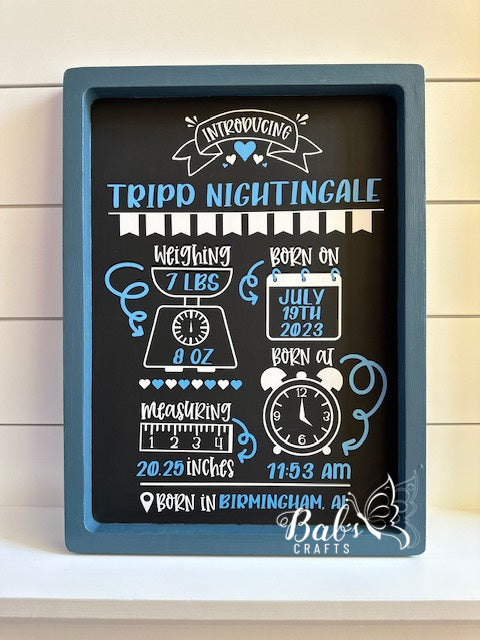 INTRODUCING
TRIPP NIGHTINGALE
Weighing
7 LBS
8 OZ
BORN ON
JULY
19TH
2023
BORN AT
12
3
6
9
11:53 AM
measuring
1 2 3 4
20.25 inches
BORN IN BIRMINGHAM, AL
Bab's
CRAFTS